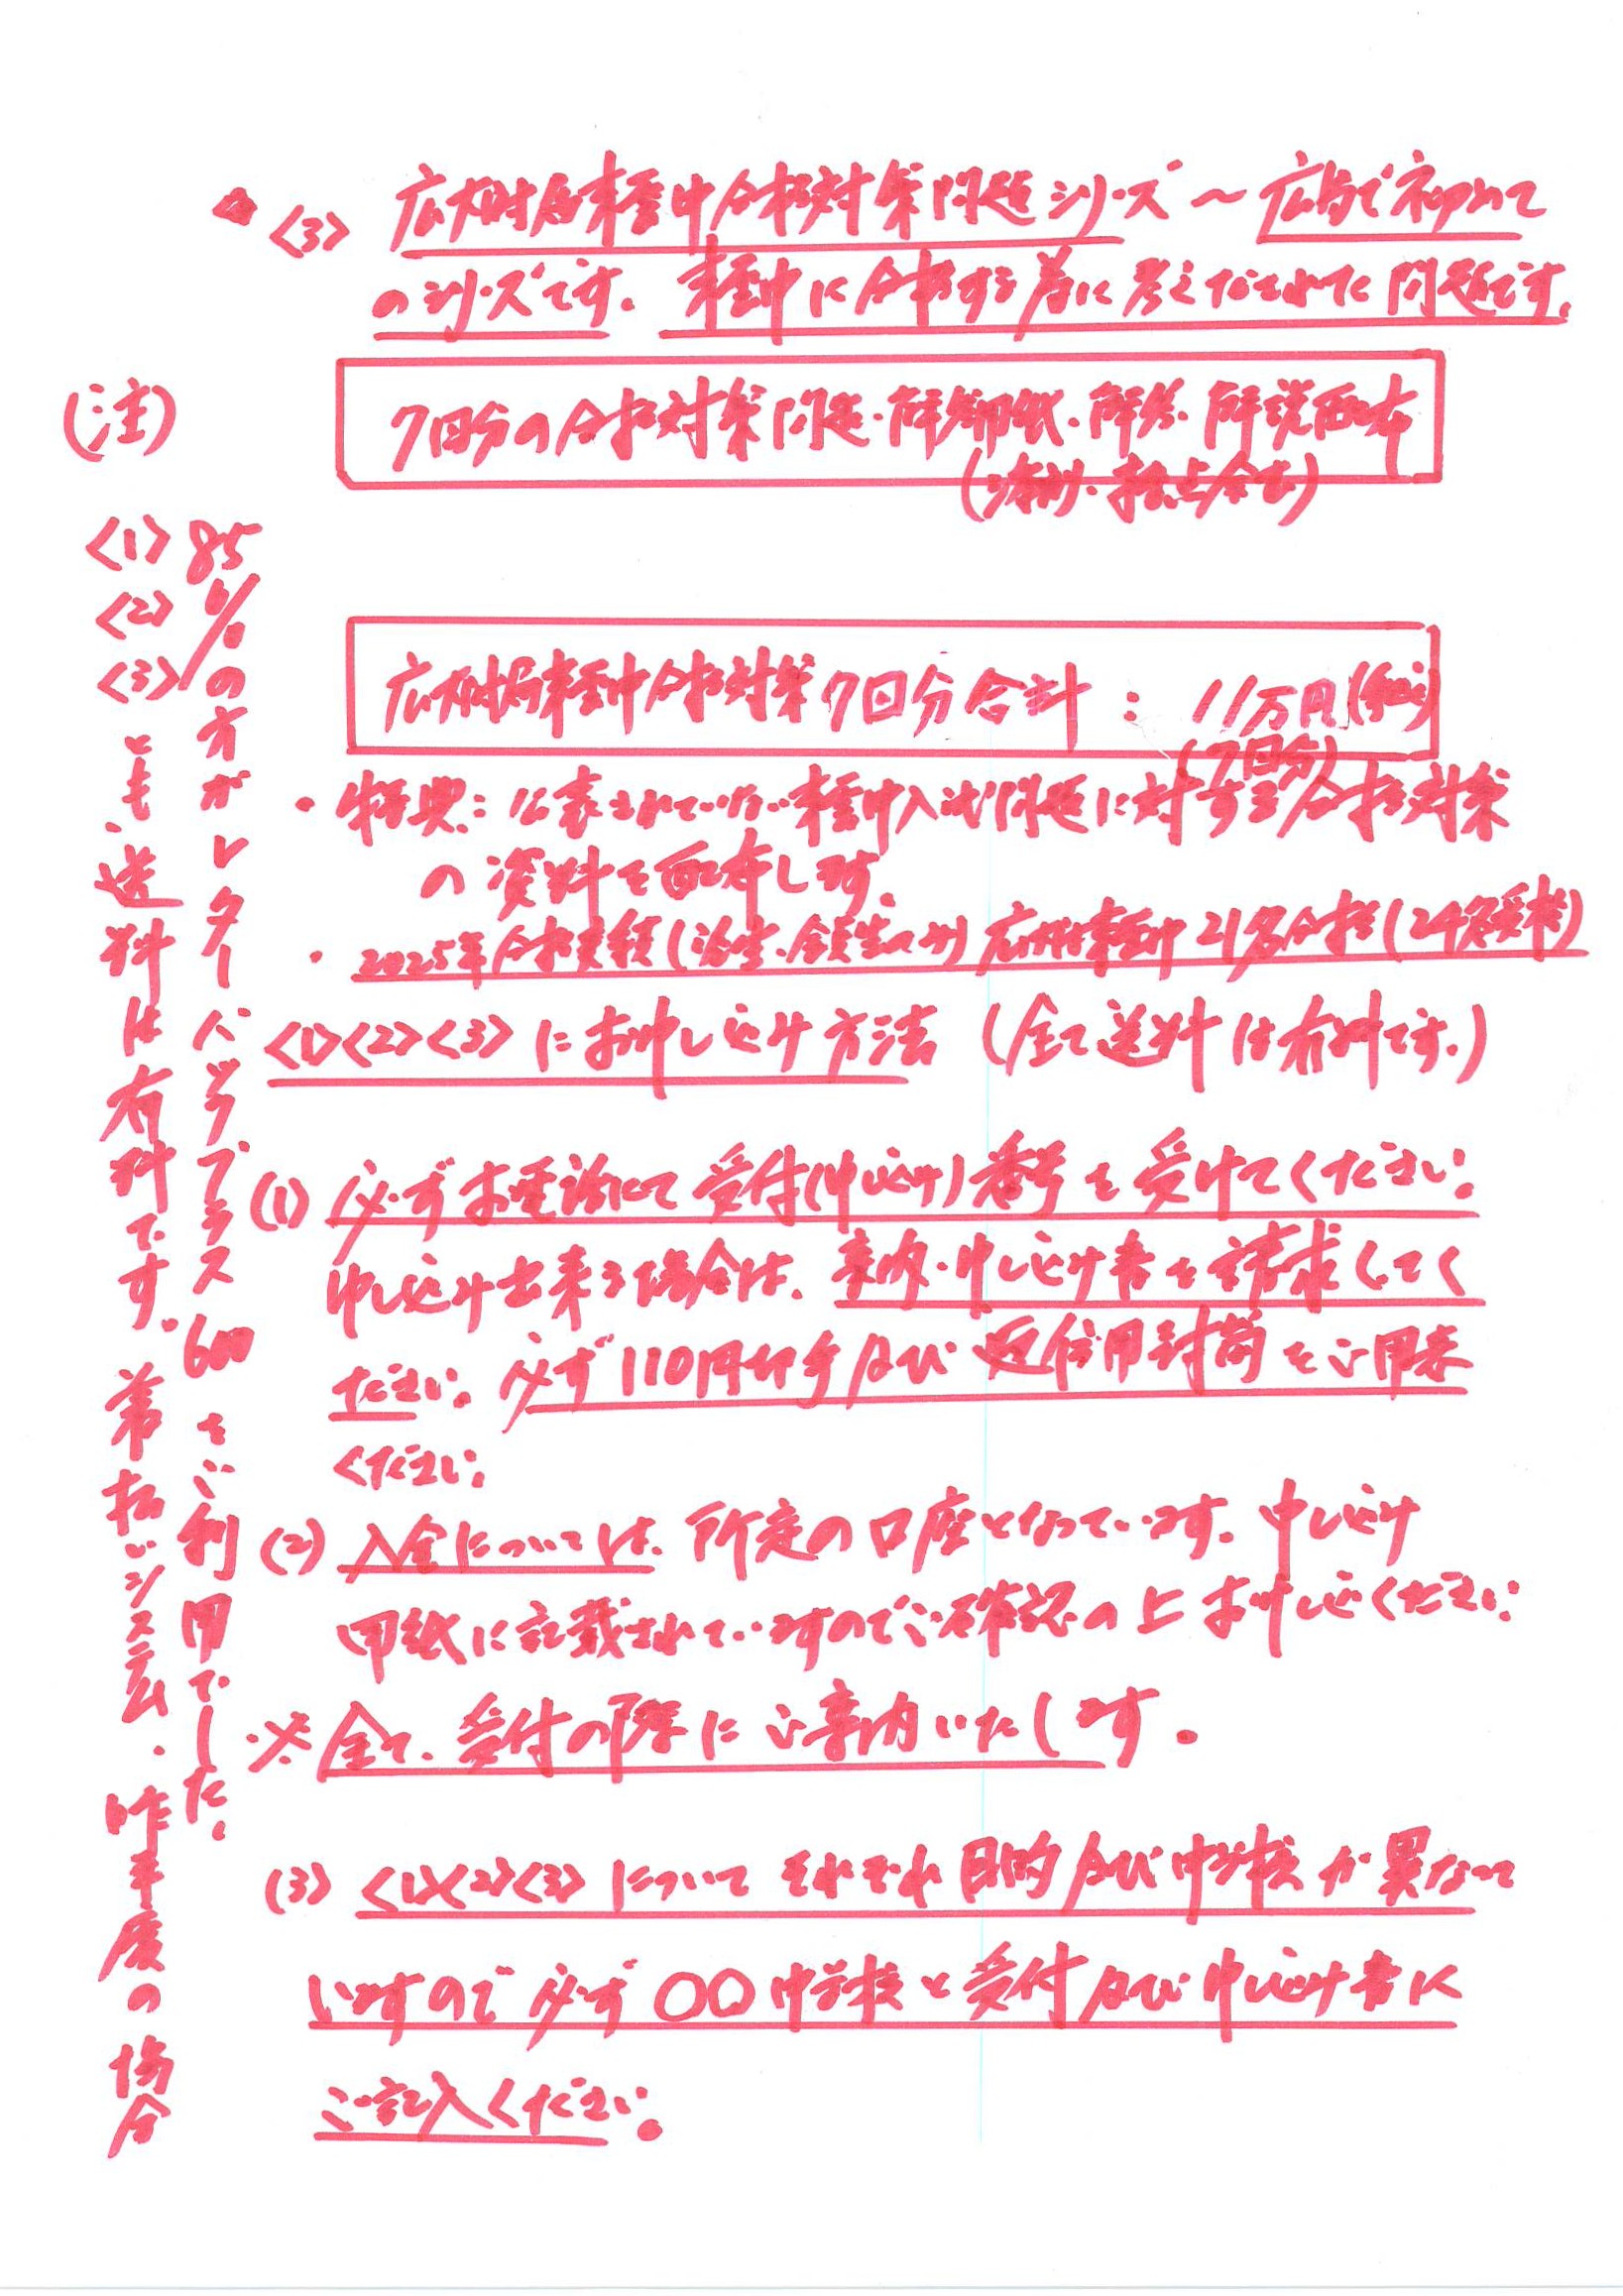 〈3〉 広大附属東雲中合格対策問題シリーズ〜広島で初めて
のシリーズです。東雲中に合格する為に考えだされた問題です。
7回分の合格対策問題・解答用紙・解答・解説配布
(添削・採点含む)
広大附属東雲中合格対策7回分合計：11万円(税込)
(7回分)
・特典：公表されていない東雲中入試問題に対する合格対策
の資料を配布します。
・2025年合格実績(塾生・会員生のみ)広大附東雲中21名合格(24名受検)
〈1〉〈2〉〈3〉にお申し込み方法 (全て送料は有料です。)
(1) 必ずお電話にて受付(申し込み)番号を受けてください。
申し込み出来る場合は、案内・申し込み書を請求してく
ださい。必ず110円切手及び返信用封筒をご用意
ください。
(2) 入金については、所定の口座となっています。申し込み
用紙に記載されていますのでご確認の上お申し込ください
※全て、受付の際にご案内いたします。
(3) 〈1〉〈2〉〈3〉についてそれぞれ目的及び中学校が異なって
いますので必ず〇〇中学校と受付及び申し込み書に
ご記入ください。
(注)
85%の方がレターパックプラス600をご利用でした。
〈1〉〈2〉〈3〉とも送料は有料です。着払いシステム・昨年度の場合